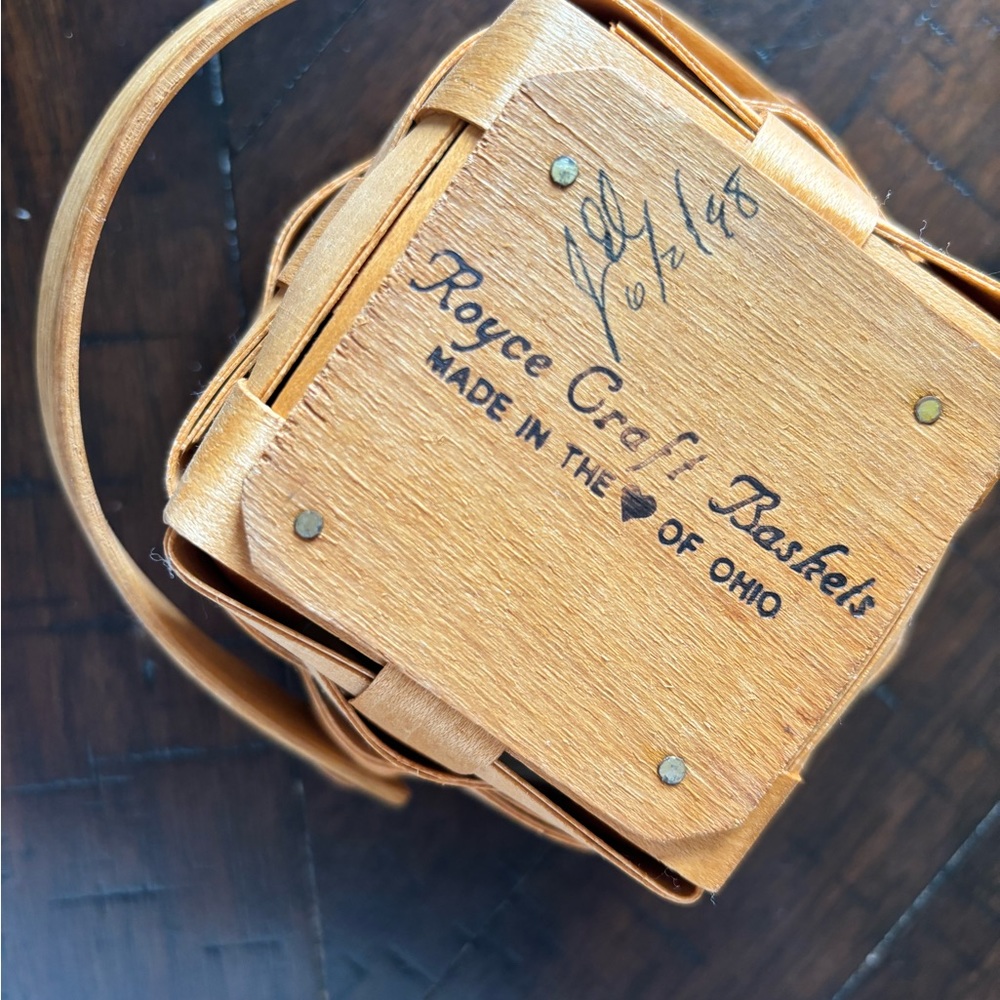 6/2/98
Royce Craft Baskets
MADE IN THE ♥ OF OHIO